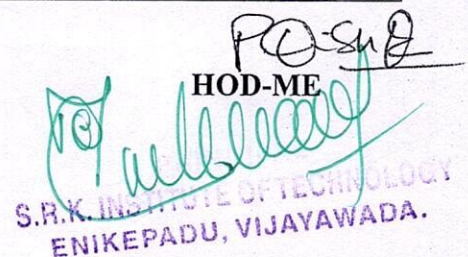 HOD-ME
S.R.K. INSTITUTE OF TECHNOLOGY
ENIKEPADU, VIJAYAWADA.